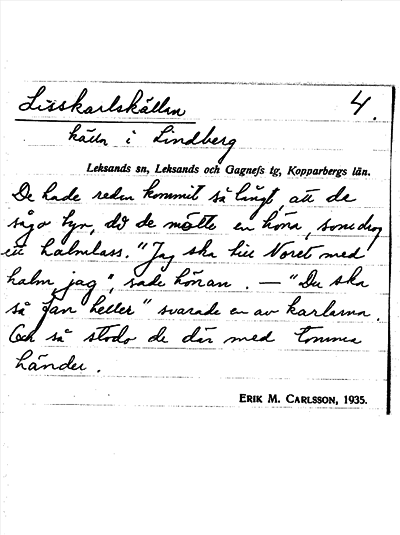 Lisskarlskällan 4.
källa i Lindberg
Leksands sn, Leksands och Gagnefs tg, Kopparbergs län.
De hade redan kommit så långt, att de
sågo byn, då de mötte en höna, som drog
ett halmlass. "Jag ska till Noret med
halm jag", sade hönan. — "Du ska
så fan heller" svarade en av karlarna.
Och så stodo de där med tomma
händer.
ERIK M. CARLSSON, 1935.